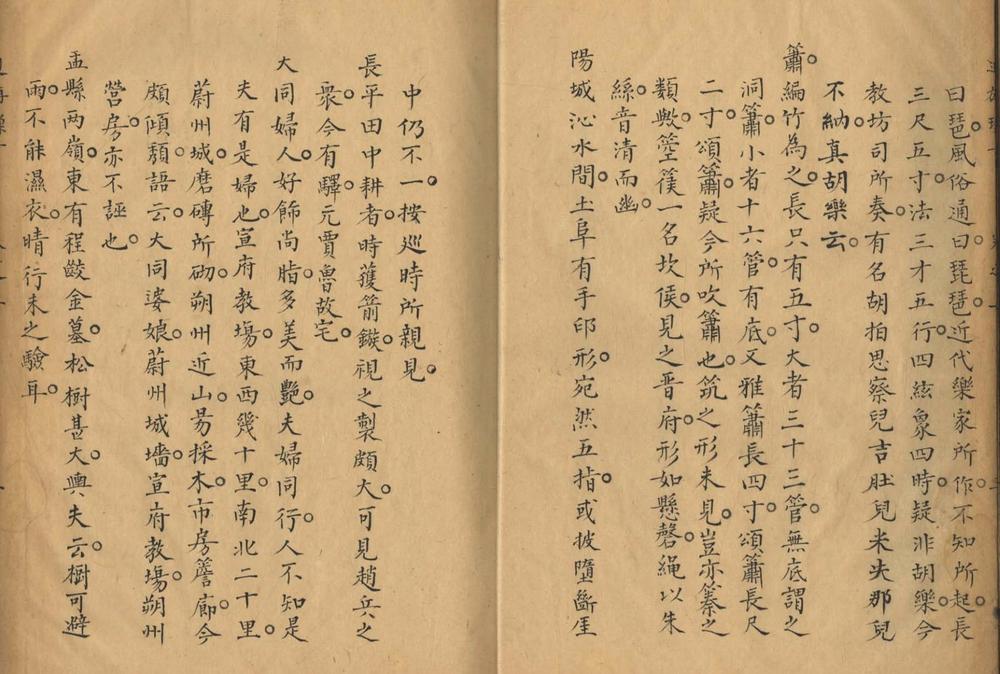 曰琶。風俗通曰。琵琶。近代樂家所作。不知所起。長
三尺五寸。法三才五行。四絃象四時。疑非胡樂。今
教坊司所奏。有名胡拍思察兒吉肚兒米失那兒
不納。真胡樂云。
簫。編竹為之。長只有五寸。大者三十三管。無底謂之
洞簫。小者十六管。有底。又雅簫長四寸。頌簫長尺
二寸。頌簫。疑今所吹簫也。筑之形未見。豈亦之
類歟。箜篌一名坎侯。見之晋府。形如懸磬。繩以朱
絲。音清而幽。
陽城沁水間。土阜有手印形。宛然五指。或披墮斷厓
中仍不一。按巡時所親見。
長平田中耕者。時獲箭鏃。視之製頗大。可見趙兵之
衆。今有驛。元賈魯故宅。
大同婦人。好飾尚脂。多美而艷。夫婦同行。人不知是
夫有是婦也。宣府教塲。東西幾十里。南北二十里。
蔚州城。磨磚所砌。朔州近山。易採木。市房簷廊。今
頗傾頽。語云。大同婆娘。蔚州城墻。宣府教塲。朔州
營房。亦不誣也。
盂縣两嶺。東有程金墓。松樹甚大。輿夫云。樹可避
雨。不能濕衣。晴行未之驗耳。